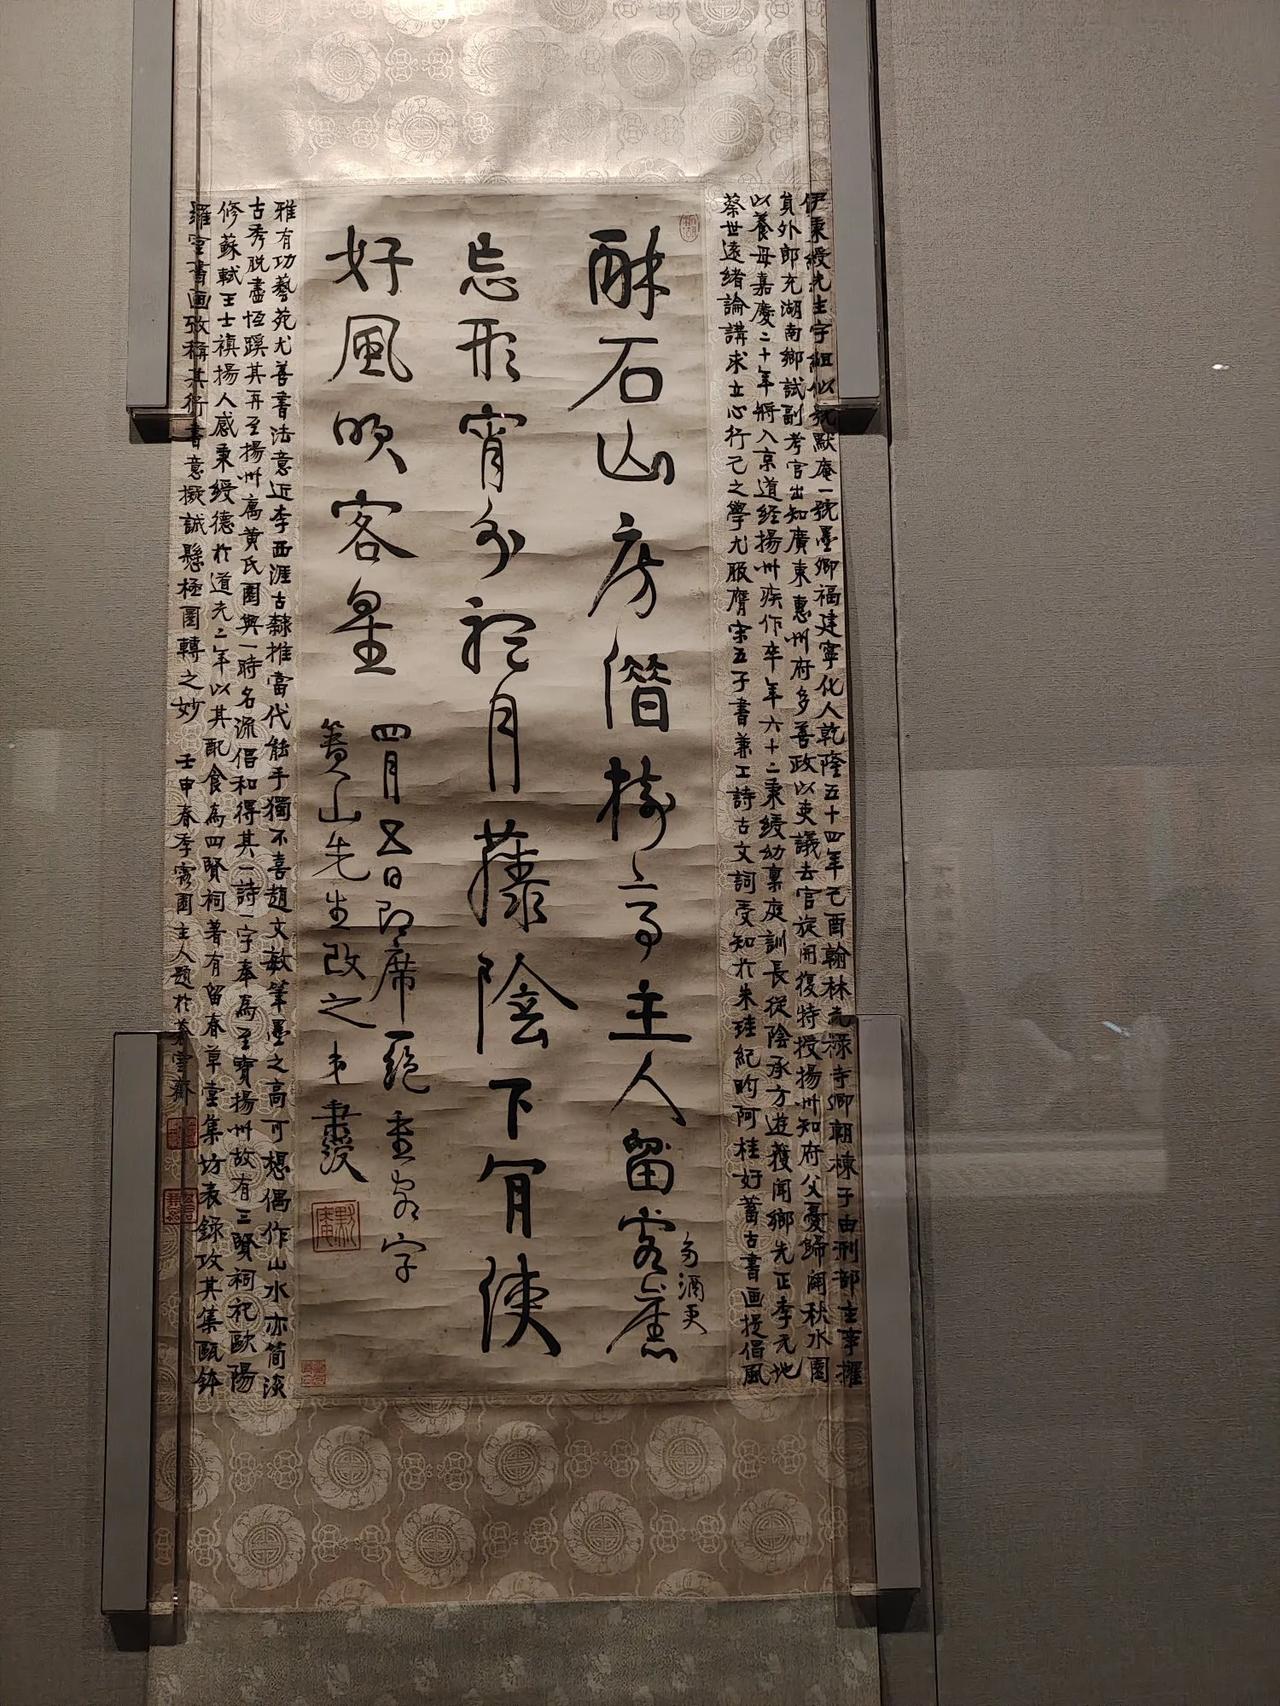 伊秉綬先生字組似號默庵一號墨卿福建寧化人乾隆五十四年己酉翰林光祿寺卿朝棟子由刑部主事擢
員外郎充湖南鄉試副考官出知廣東惠州府多善政以吏議去官旋開復特授揚州知府父憂歸闢秋水園
以養母嘉慶二十年將入京道經揚州疾作卒年六十二秉綬幼稟庭訓長從陰承方遊獲聞鄉先正李元地
蔡世遠緒論講求立心行己之學尤服膺宋五子書兼工詩古文詞受知於朱珪紀昀阿桂好蓄古書画提倡風
石山房偕椅亭主人留客
忘形宵分禮月藤陰下有使
好風吹客星
四月五日即席一絕
筤山先生改之弟秉綬
雅有功藝苑尤善書法意近李西涯古隸推當代能手獨不喜趙文敏筆墨之高可想偶作山水亦簡淡
古秀脫盡恆蹊其再至揚州寓黃氏園與一時名流倡和得其一詩一字奉為至寶揚州故有三賢祠祀歐陽
修蘇軾王士禛揚人感秉綬德於道光二年以其配食為四賢祠著有留春草堂集坊表錄攻其集甌缽
羅室書画攷稱其行書意擬誠懸極圓轉之妙 壬申春季霱園主人題於慕雲齋